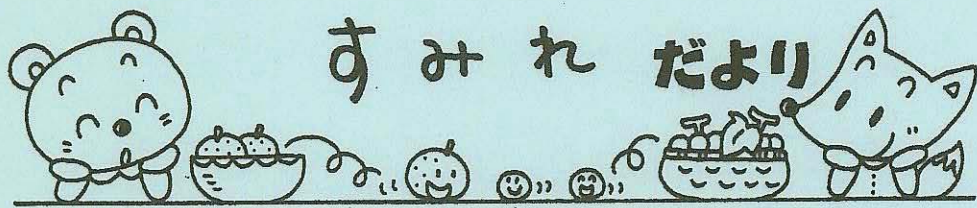 すみれ だより